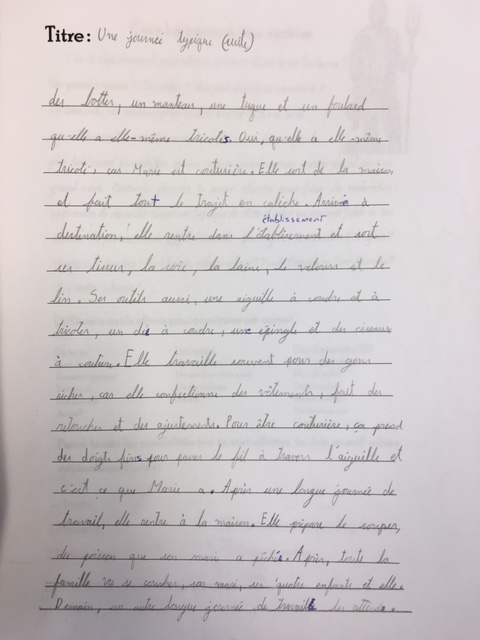 Titre: Une journée typique (suite)
des bottes, un manteau, une tuque et un foulard
qu'elle a elle-même tricotés. Oui, qu'elle a elle-même
tricoté, car Marie est couturière. Elle sort de la maison
et fait tout le trajet en calèche. Arrivée à
établissement
destination, elle rentre dans l'établisement et sort
ses tissus, la soie, la laine, le velours et le
lin. Ses outils aussi, une aiguille à coudre et à
tricoter, un dés à coudre, une épingle et des ciseaux
à couture. Elle travaille souvent pour des gens
riches, car elle confectionne des vêtements, fait des
retouches et des ajustements. Pour être couturière, ça prend
des doigts fins pour passer le fil à travers l'aiguille et
c'est ce que Marie a. Après une longue journée de
travail, elle rentre à la maison. Elle prépare le souper,
du poisson que son mari a pêché. Après, toute la
famille va se coucher, son mari, ses quatre enfants et elle.
Demain, un autre longue journée de travail les attends.